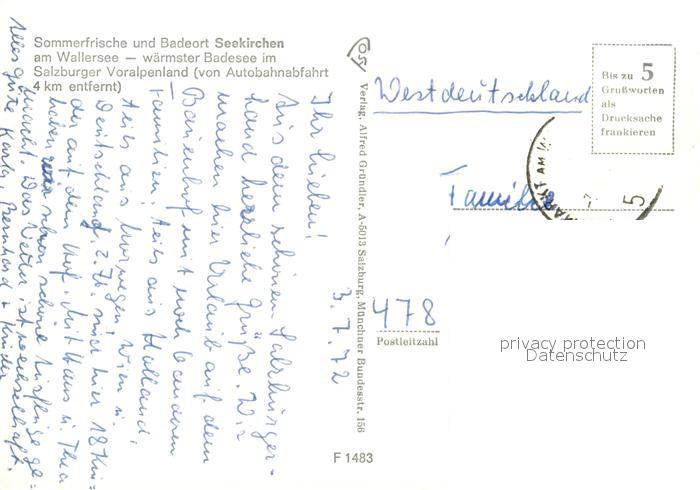 Sommerfrische und Badeort Seekirchen
am Wallersee — wärmster Badesee im
Salzburger Voralpenland (von Autobahnabfahrt
4 km entfernt)
3.7.72
Ihr Lieben!
Aus dem schönen Salzburger-
land herzliche Grüße. Wir
machen hier Urlaub auf dem
Bauernhof mit noch 6 anderen
Familien, teils aus Holland,
teils aus Norwegen, Wien u.
Deutschland. Z. Zt. sind hier 18 Kin-
der auf dem Hof. Mit Hans u. Thea
haben wir schon schöne Ausflüge ge-
macht. Das Wetter ist wechselhaft.
Alles gute Karla, Bernhard + Kinder
Verlag Alfred Gründler, A-5013 Salzburg, Münchner Bundesstr. 156
Westdeutschland
Bis zu 5
Grußworten
als
Drucksache
frankieren
MARKT AM W
5
Familie
478
Postleitzahl
privacy protection
Datenschutz
F 1483